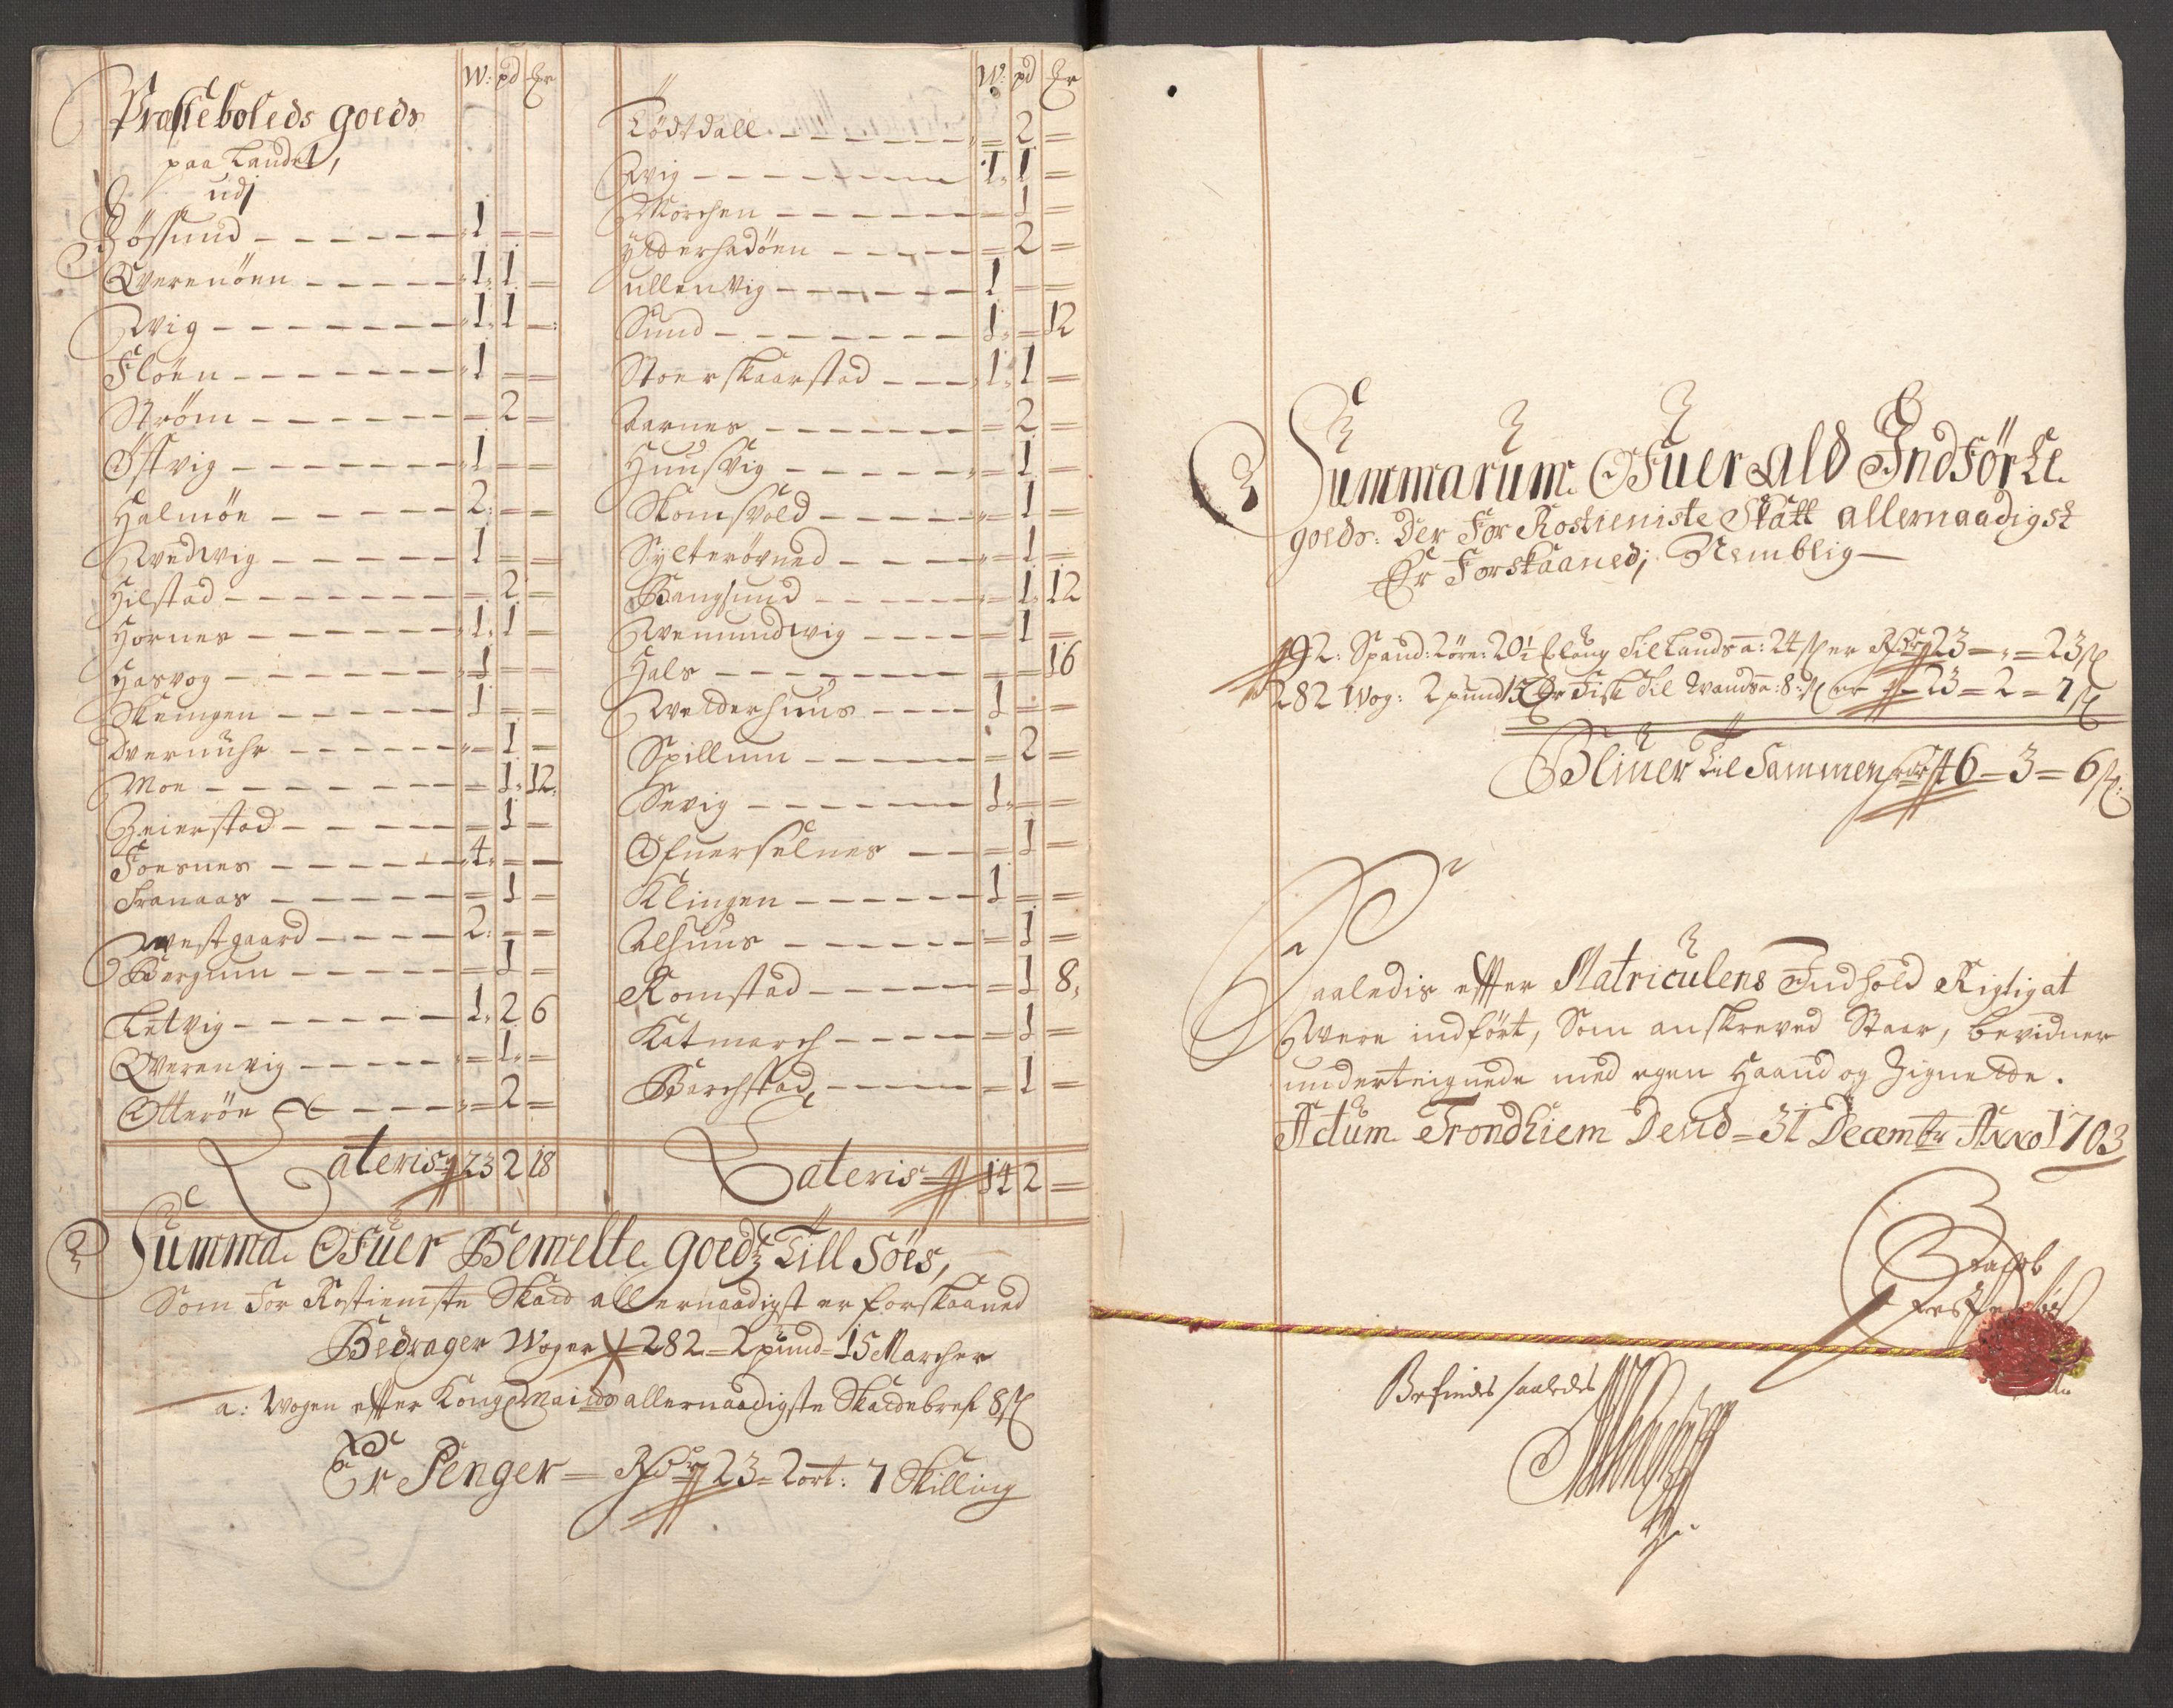 W: pd Er
Præsteboleds goeds
paa Landet,
udj
Bössund — 1 = =
Qverenöen — 1 1 =
Wiig — 1 1 =
Floen — 1 = =
Ström — = 2 =
Östvig — 1 = =
Halmöe — 2 = =
Qvedwig — 1 = =
Hilstad — = 2 =
Hornes — 1 1 =
Hasvog — 1 = =
Skeingen — 1 = =
Overnuhr — = 1 =
Moe — = 1 12
Zeierstad — = 1 =
Foesnes — 4 = =
Franaas — = 1 =
westgaard — 2 = =
Bergum — = 1 =
Letvig — 1 2 6
Qverenvig — = 1 =
Otteröe — = 2 =
Lateris 23 2 18
W: pd Er
Lödtdall — = 2 =
Wiig — 1 1 =
Morchen — = 1 =
ytterhadöen — = 2 =
ullenvig — 1 = =
Sund — 1 = 12
Stoerskaarstad — 1 1 =
Aarnes — = 2 =
Huusvig — = 1 =
Skomsvold — = 1 =
Sylterövned — = 1 =
Bangsund — = 1 12
Wemundwig — = 1 =
Hals — = = 16
Welderhuus — 1 = =
Spillum — = 2 =
Sevig — 1 = =
Ofuerselnes — = 1 =
Klingen — 1 = =
Alhuus — = 1 =
Romstad — = 1 8
Katmarch — = 1 =
Barchstad — = 1 =
Lateris 14 2 =
Summa Ofuer Bemelte goedz Till Söes,
Som for Rostienste Skatt allernaadigst er forskaaned
Bedrager Woger 282 = 2 pund = 15 Marcher
a: Wogen effter Kong Maitz allernaadigste Skattebref 8 sk
Er Penger = Rdr 23 = 2 ort: 7 Skilling
Summarum Ofuer ald Indförte
goeds: der for Rostieniste Skatt allernaadigst
Er forskaaned; Nemblig
92: Spand: 2 öre: 20½ til Lands a: 24 sk er Rdr 23 = = 23 sk
282 Wog: 2 pund 15 Er fisk til Wands a: 8 sk er 23 = 2 = 7 sk
Bliuer til Sammen Rdr 46 = 3 = 6 sk:
Saaledis effter Matriculens Indhold Rigtig at
Were indfört, Som anskreved Staar, bevidner
underteignede med egen Haand og Zignette.
Actum Trondhiem Dend = 31 Decembr Anno 1703
Jacob
Befindes saaledes